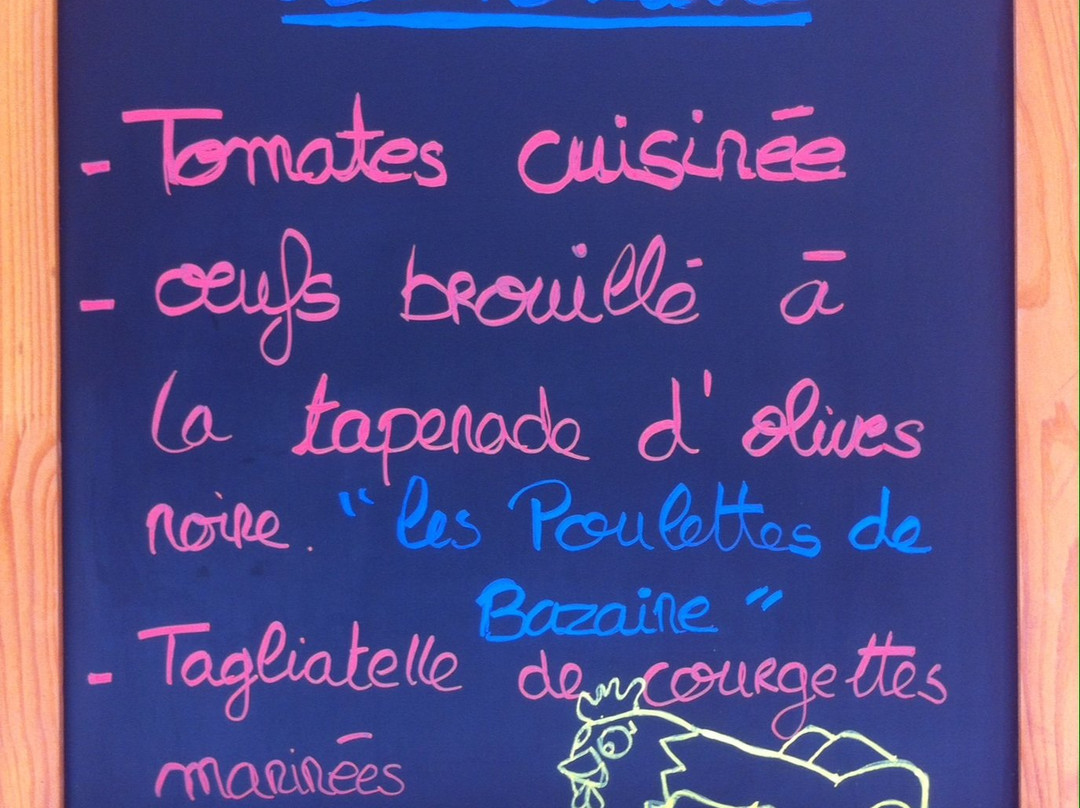 - Tomates cuisinée
- œufs brouillé à
la tapenade d'olives
noire. "les Poulettes de
Bazaine"
- Tagliatelle de courgettes
marinées